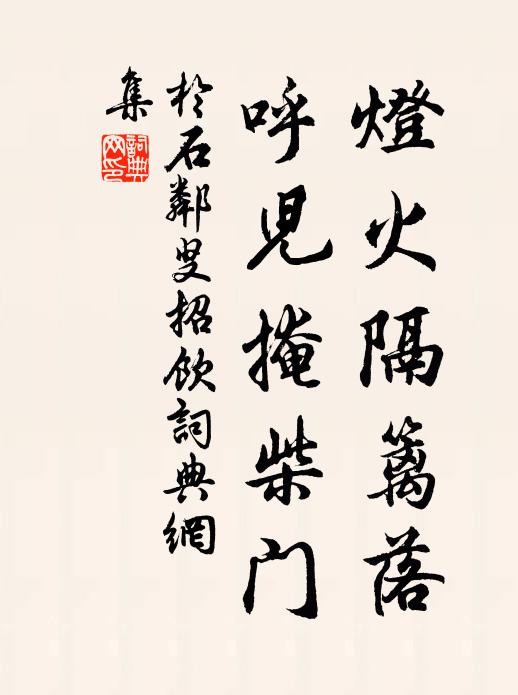 燈火隔籬落
呼兒掩柴门
於石鄰叟招飲詞典網
集
詞典网印